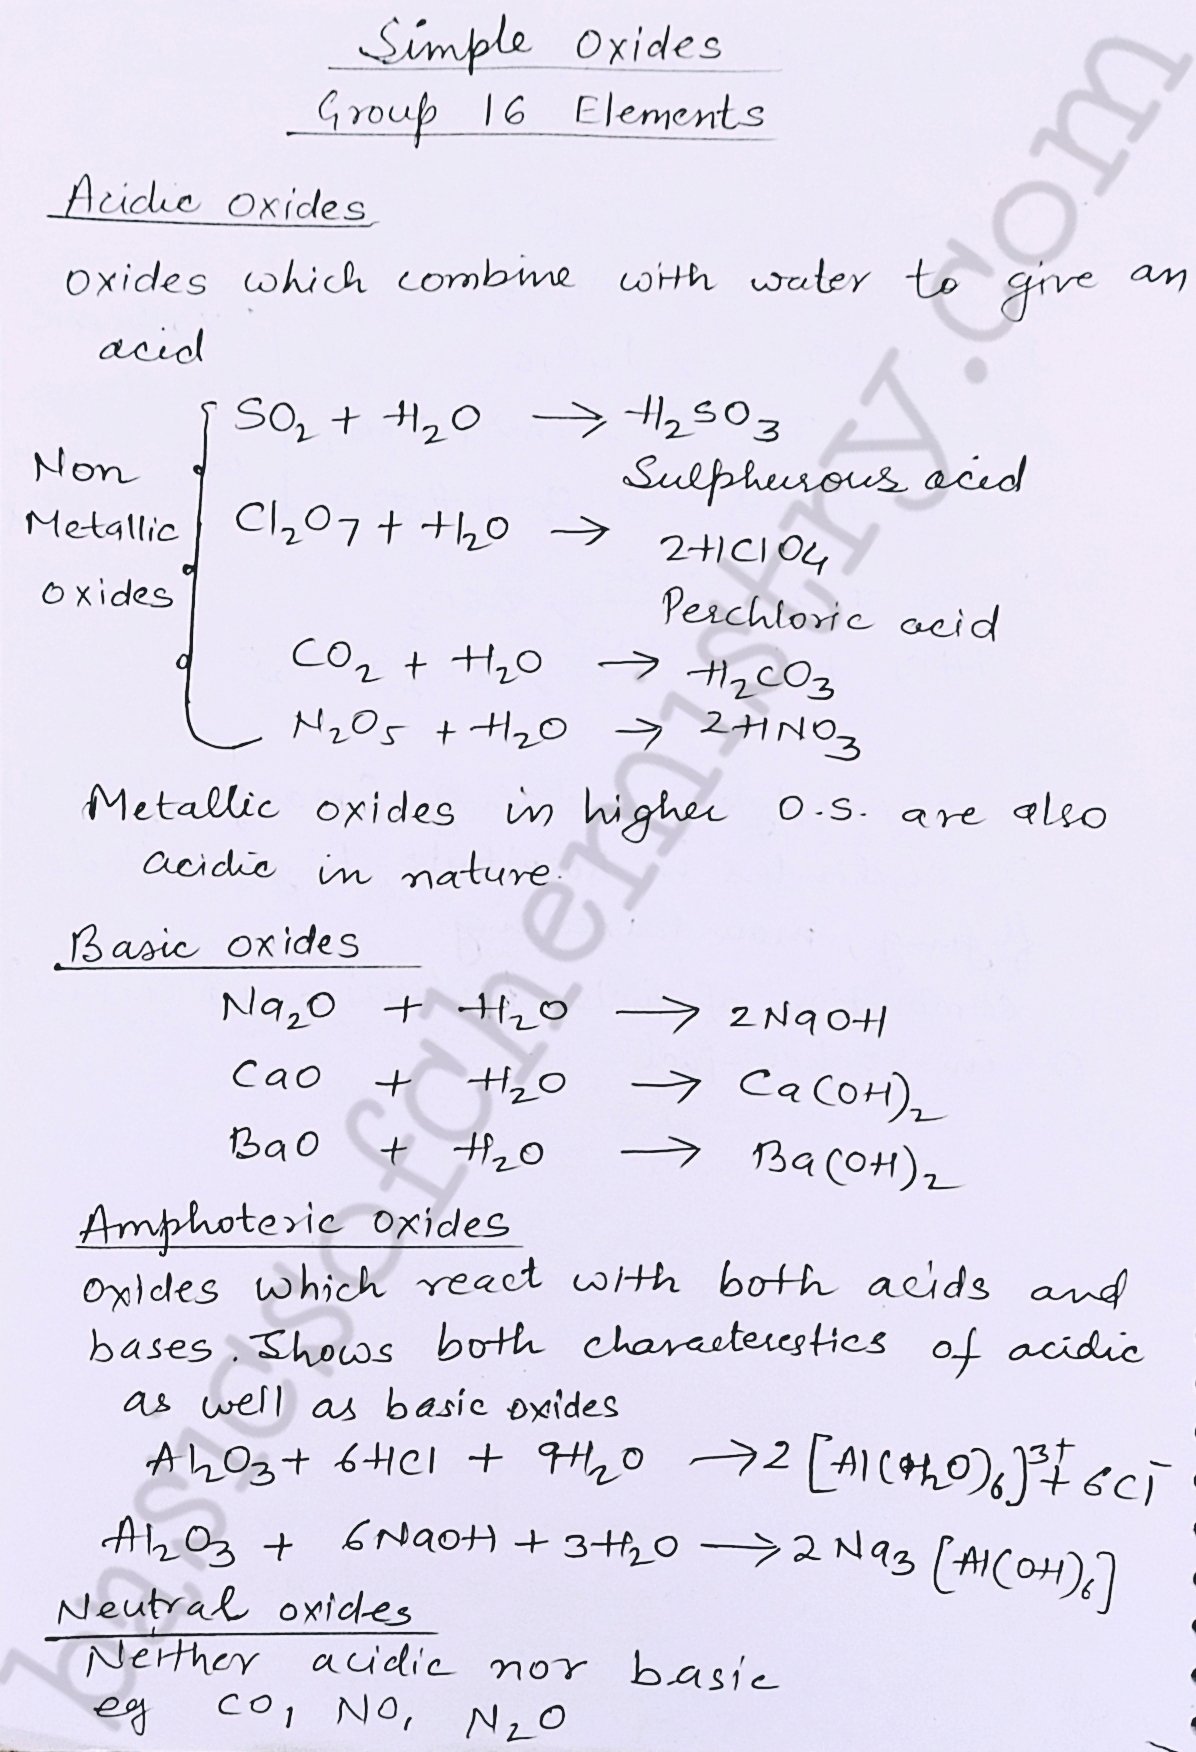 Simple Oxides
Group 16 Elements
Acidic Oxides
Oxides which combine with water to give an
acid
SO₂ + H₂O → H₂SO₃
Sulphurous acid
Non
Metallic
oxides
Cl₂O₇ + H₂O →
2HClO₄
Perchloric acid
CO₂ + H₂O → H₂CO₃
N₂O₅ + H₂O → 2HNO₃
Metallic oxides in higher O.S. are also
acidic in nature.
Basic oxides
Na₂O + H₂O → 2NaOH
CaO + H₂O → Ca(OH)₂
BaO + H₂O → Ba(OH)₂
Amphoteric oxides
Oxides which react with both acids and
bases. Shows both characterestics of acidic
as well as basic oxides
Al₂O₃ + 6HCl + 9H₂O → 2[Al(H₂O)₆]³⁺ + 6Cl⁻
Al₂O₃ + 6NaOH + 3H₂O → 2Na₃[Al(OH)₆]
Neutral oxides
Neither acidic nor basic
eg CO, NO, N₂O
basicsofchemistry.com